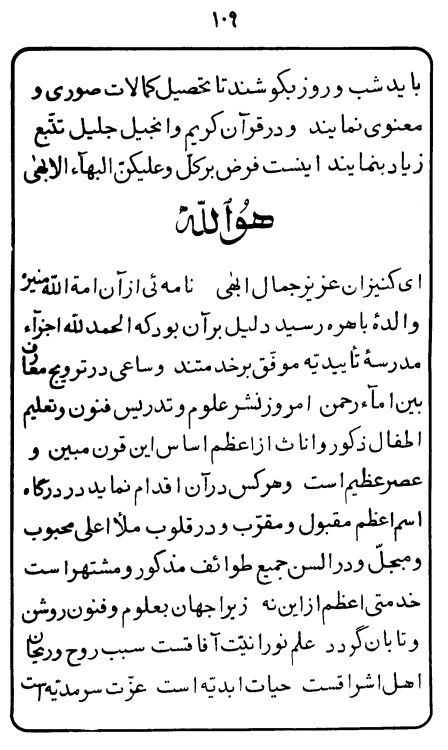 ۱۰۹
باید شب و روز بکوشند تا تحصیل کمالات صوری و
معنوی نمایند و در قرآن کریم و انجیل جلیل تتبّع
زیاد بنمایند اینست فرض بر کلّ و علیکنّ البهآء الابهیٰ
هوُ اللّه
ای کنیزان عزیز جمال ابهیٰ نامه ئی از آن امة اللّه منیرهٔ
والدهٔ باهره رسید دلیل بر آن بود که الحمد للّه اجزآء
مدرسهٔ تأییدیّه موفّق بر خدمتند و ساعی در ترویج معارف
بین امآء رحمن امروز نشر علوم و تدریس فنون و تعلیم
اطفال ذکور و اناث از اعظم اساس این قرن مبین و
عصر عظیم است و هر کس در آن اقدام نماید در درگاه
اسم اعظم مقبول و مقرّب و در قلوب ملأ اعلی محبوب
و مبجلّ و در السن جمیع طوائف مذکور و مشتهر است
خدمتی اعظم از این نه زیرا جهان بعلوم و فنون روشن
و تابان گردد علم نورانیّت آفاقست سبب روح و ریحان
اهل اشراقست حیات ابدیّه است عزّت سرمدیّه است